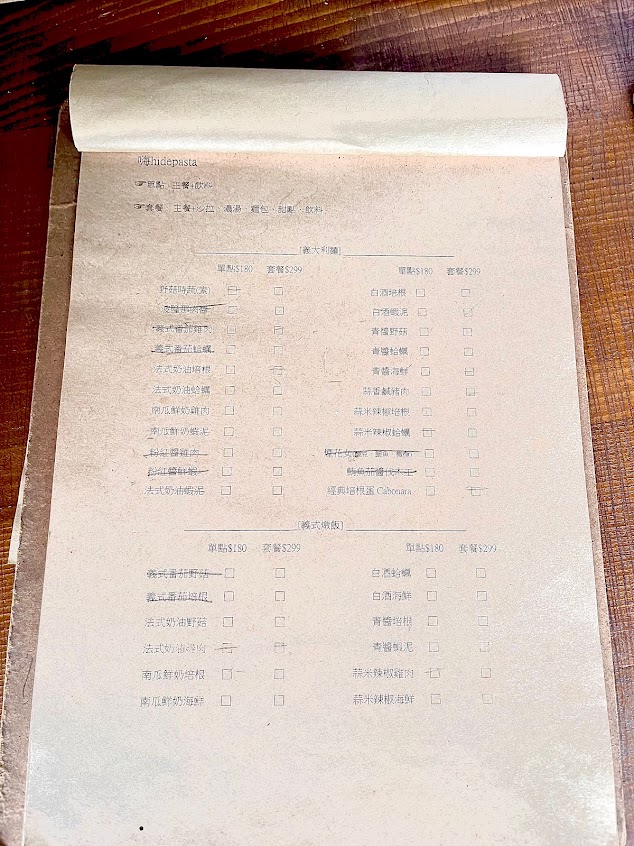 嗨hidepasta
☞單點 主餐+飲料
☞套餐 主餐+沙拉、濃湯、麵包、甜點、飲料
[義大利麵]
單點$180 套餐$299 單點$180 套餐$299
野菇時蔬(素) □ □ 白酒培根 □ □
□ □ 白酒蝦泥 □ □
義式番茄雞肉 □ □ 青醬野菇 □ □
義式番茄蛤蠣 □ □ 青醬蛤蠣 □ □
法式奶油培根 □ □ 青醬海鮮 □ □
法式奶油蛤蠣 □ □ 蒜香鹹豬肉 □ □
南瓜鮮奶雞肉 □ □ 蒜米辣椒培根 □ □
南瓜鮮奶蝦泥 □ □ 蒜米辣椒蛤蠣 □ □
粉紅醬雞肉 □ □ 煙花女 □ □
粉紅醬鮮蝦 □ □ 鮪魚茄醬 □ □
法式奶油蝦泥 □ □ 經典培根蛋 Cabonara □ □
[義式燉飯]
單點$180 套餐$299 單點$180 套餐$299
義式番茄野菇 □ □ 白酒蛤蠣 □ □
義式番茄培根 □ □ 白酒海鮮 □ □
法式奶油野菇 □ □ 青醬培根 □ □
法式奶油雞肉 □ □ 青醬蝦泥 □ □
南瓜鮮奶培根 □ □ 蒜米辣椒雞肉 □ □
南瓜鮮奶海鮮 □ □ 蒜米辣椒海鮮 □ □